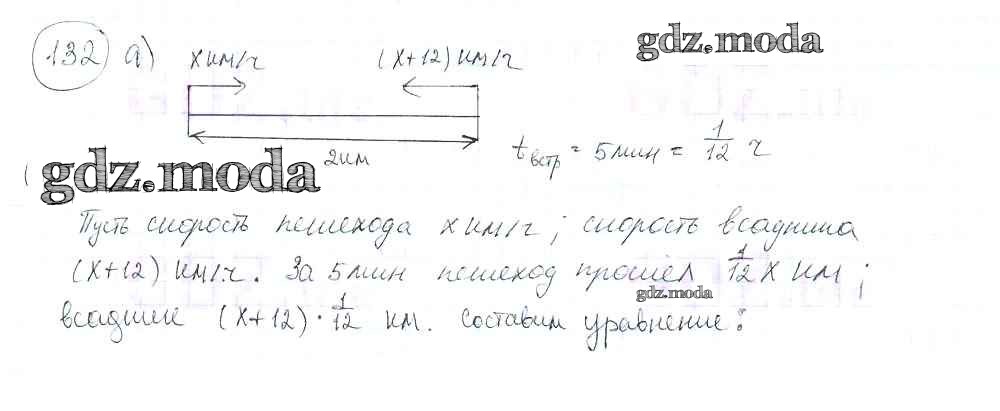 132 а) х км/ч (х+12) км/ч
gdz.moda
2км
tвстр = 5мин = 1/12 ч
gdz.moda
Пусть скорость пешехода х км/ч; скорость всадника
(х+12) км/ч. За 5 мин пешеход прошёл 1/12 х км;
gdz.moda
всадник (х+12) · 1/12 км. составим уравнение: